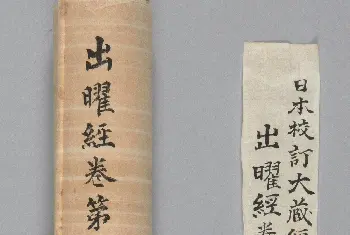 出曜經卷第
日本校訂大藏經
出曜經卷